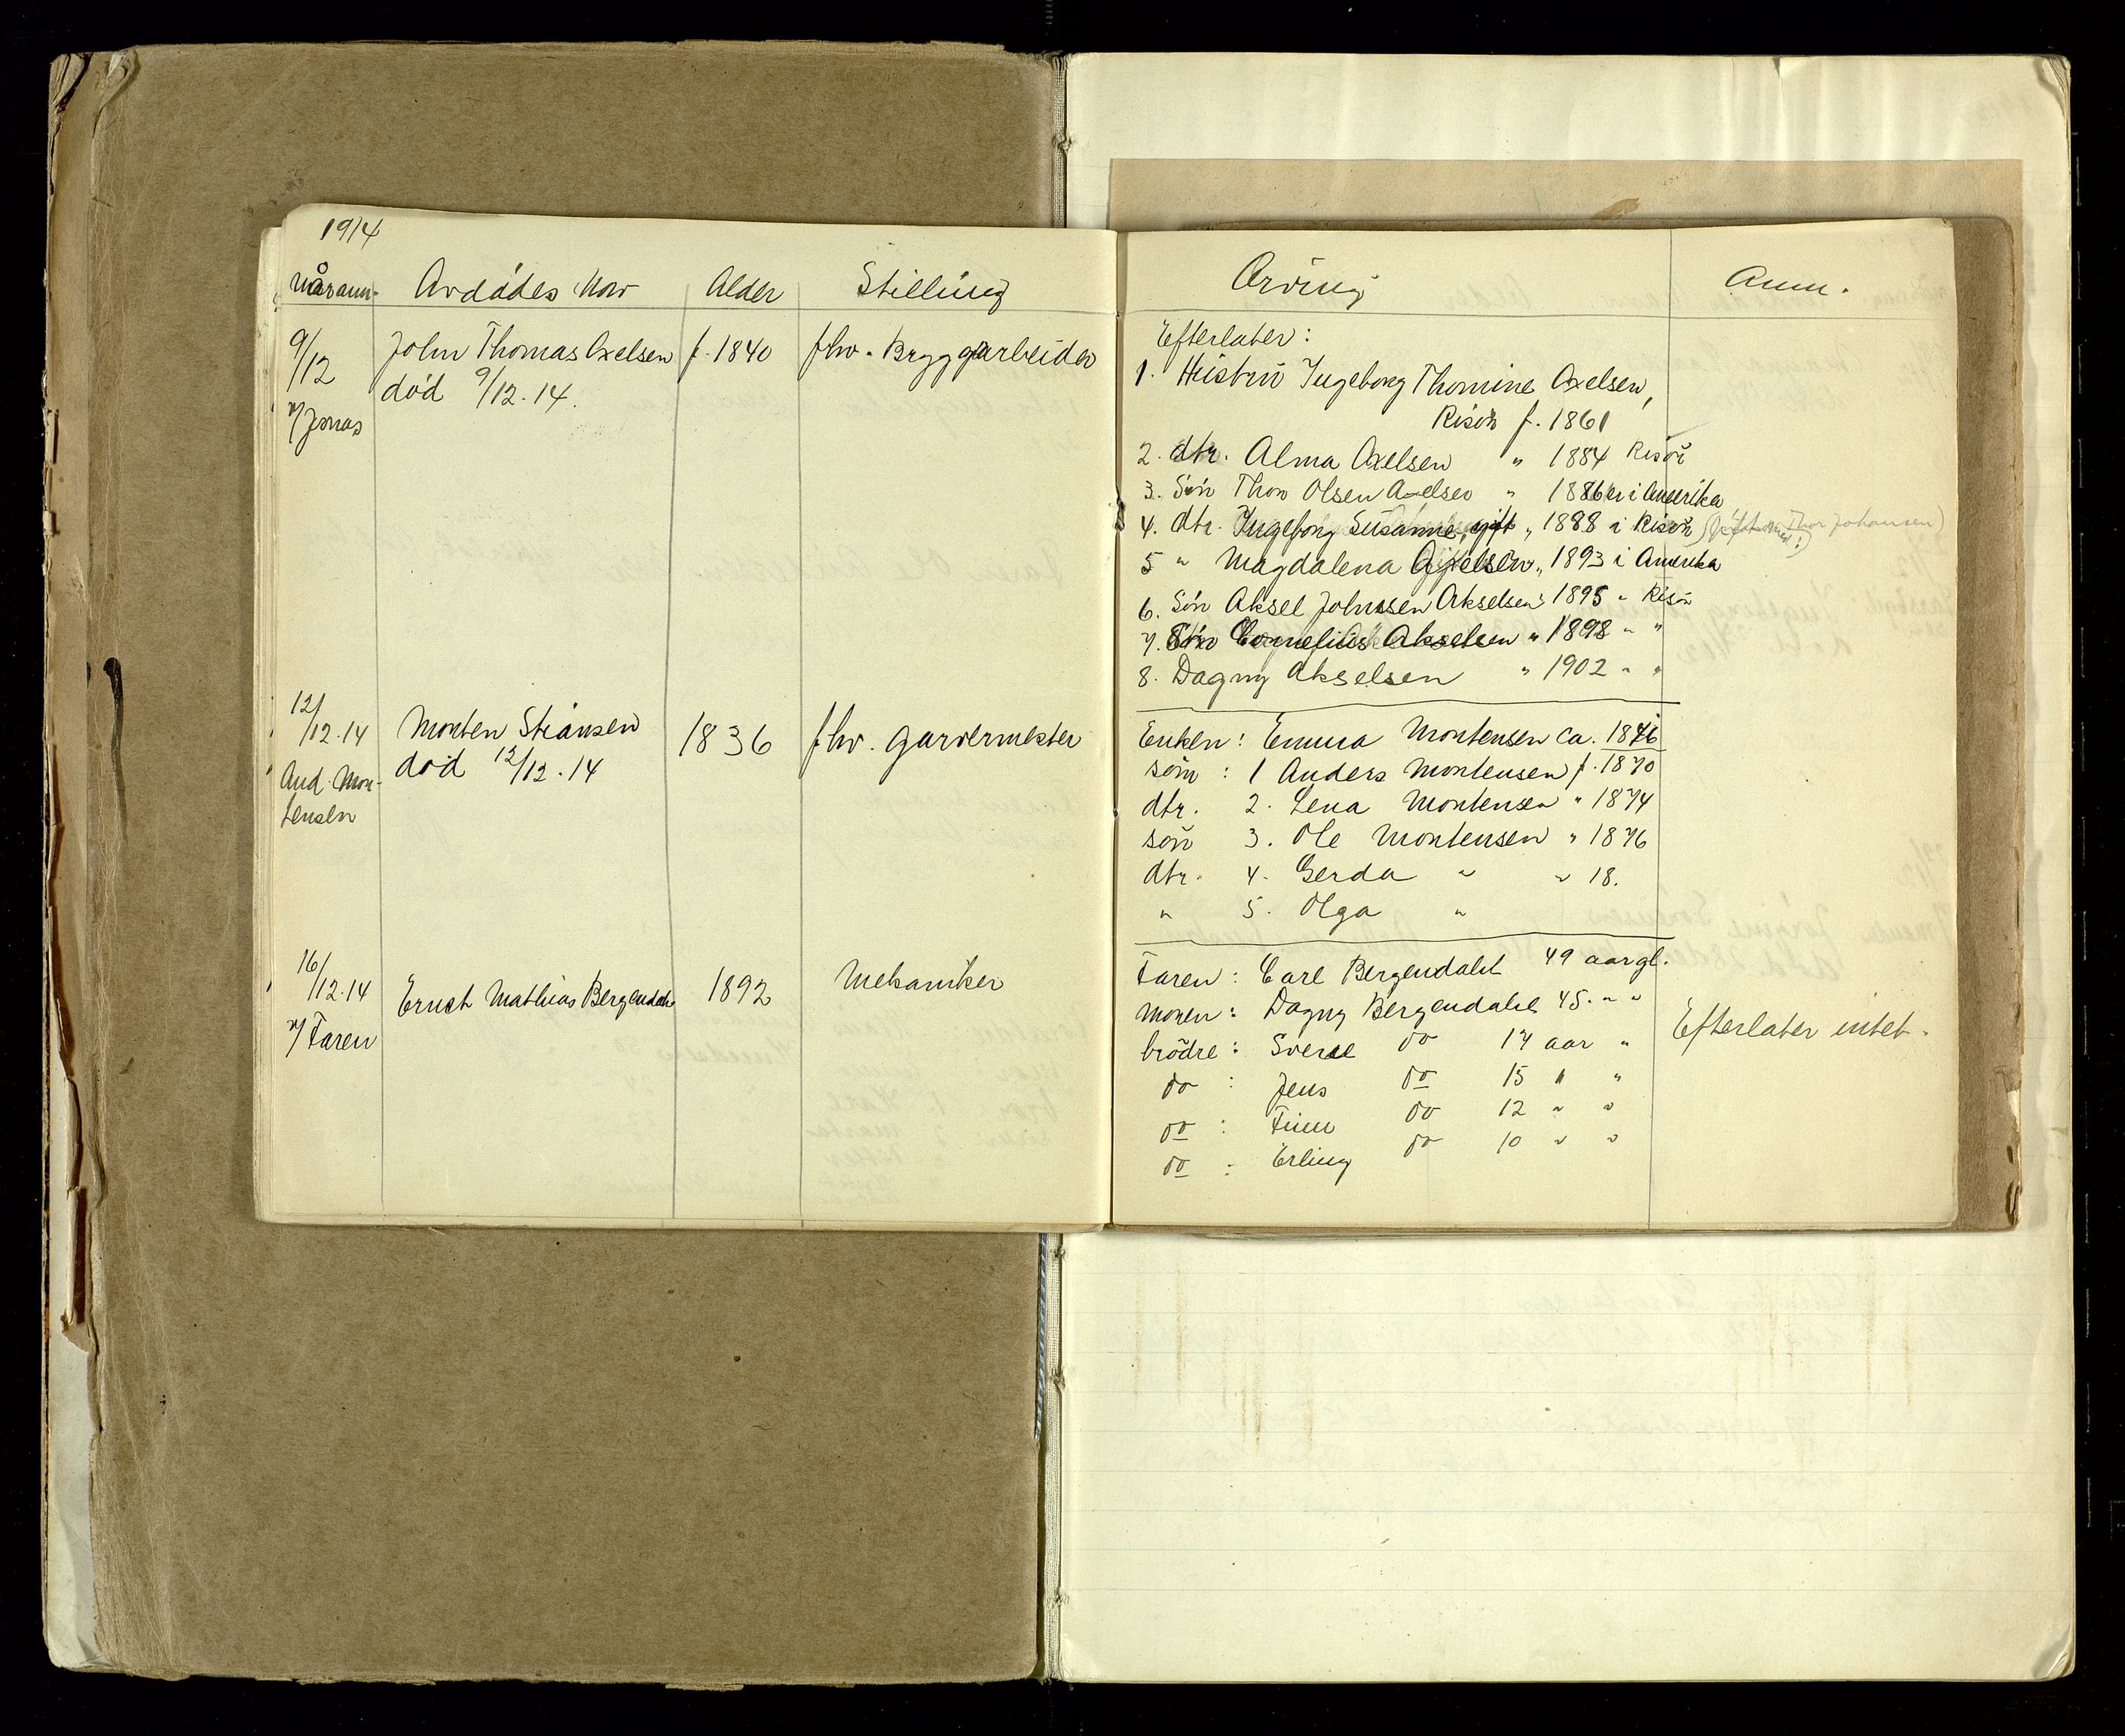 1914
Når anm. Avdödes Nav Alder Stilling
9/12 John Thomas Axelsen f. 1840 fhv. Bryggearbeider
død 9/12.14.
v/ Jonas
12/12.14 Morten Stiansen 1836 fhv. garvermester
And. Mor- død 12/12.14
tensen
16/12.14 Ernst Mathias Bergendah 1892 Mekaniker
v/ Faren
Arving Anm.
Efterlater:
1. Hustru Ingeborg Thomine Axelsen,
Risör f. 1861
2. dtr. Alma Axelsen " 1884 Risör
3. Sön Thor Olsen Axelsen " 1886 er i Amerika
4. dtr. Ingeborg Susanne, gift " 1888 i Risör (gift med: Thor Johansen)
5 " Magdalena Axelsen " 1893 i Amerika
6. Sön Aksel Johnsen Akselsen " 1895 " Risör
7. Sön Cornelius Akselsen " 1898 " "
8. Dagny Akselsen " 1902 " "
Enken: Emma Mortensen ca. 1846
sön : 1 Anders Mortensen f. 1870
dtr. 2. Lena Mortensen " 1874
sön 3. Ole Mortensen " 1876
dtr. 4. Gerda " " 18.
" 5. Olga "
Faren: Carl Bergendahl 49 aar gl.
Moren: Dagny Bergendahl 45. " "
brödre: Sverre do 17 aar "
do : Jens do 15 " "
do : Finn do 12 " "
do : Erling do 10 " "
Efterlater intet.